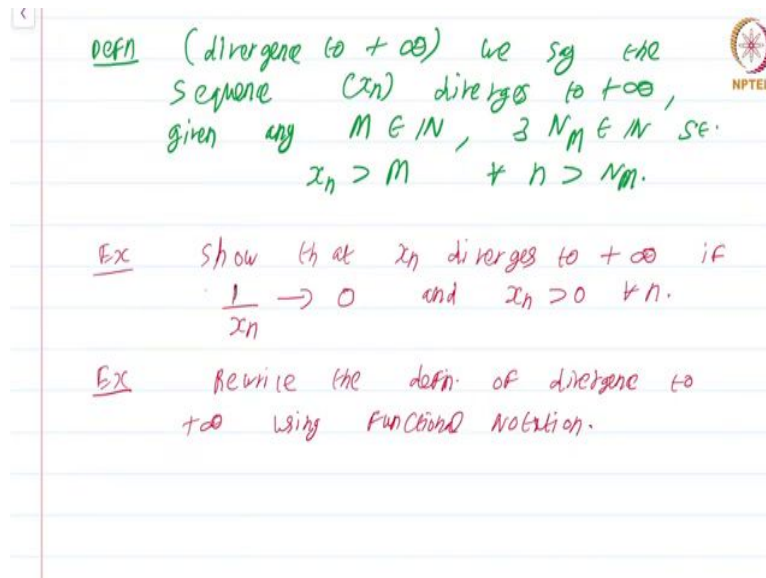 Defn (divergence to +∞) we say the
sequence (xn) diverges to +∞,
given any M ∈ IN, ∃ NM ∈ IN st.
xn > M ∀ n > NM.
NPTEL
Ex show that xn diverges to +∞ if
1/xn → 0 and xn > 0 ∀ n.
Ex Rewrite the defn. of divergence to
+∞ using Functional Notation.